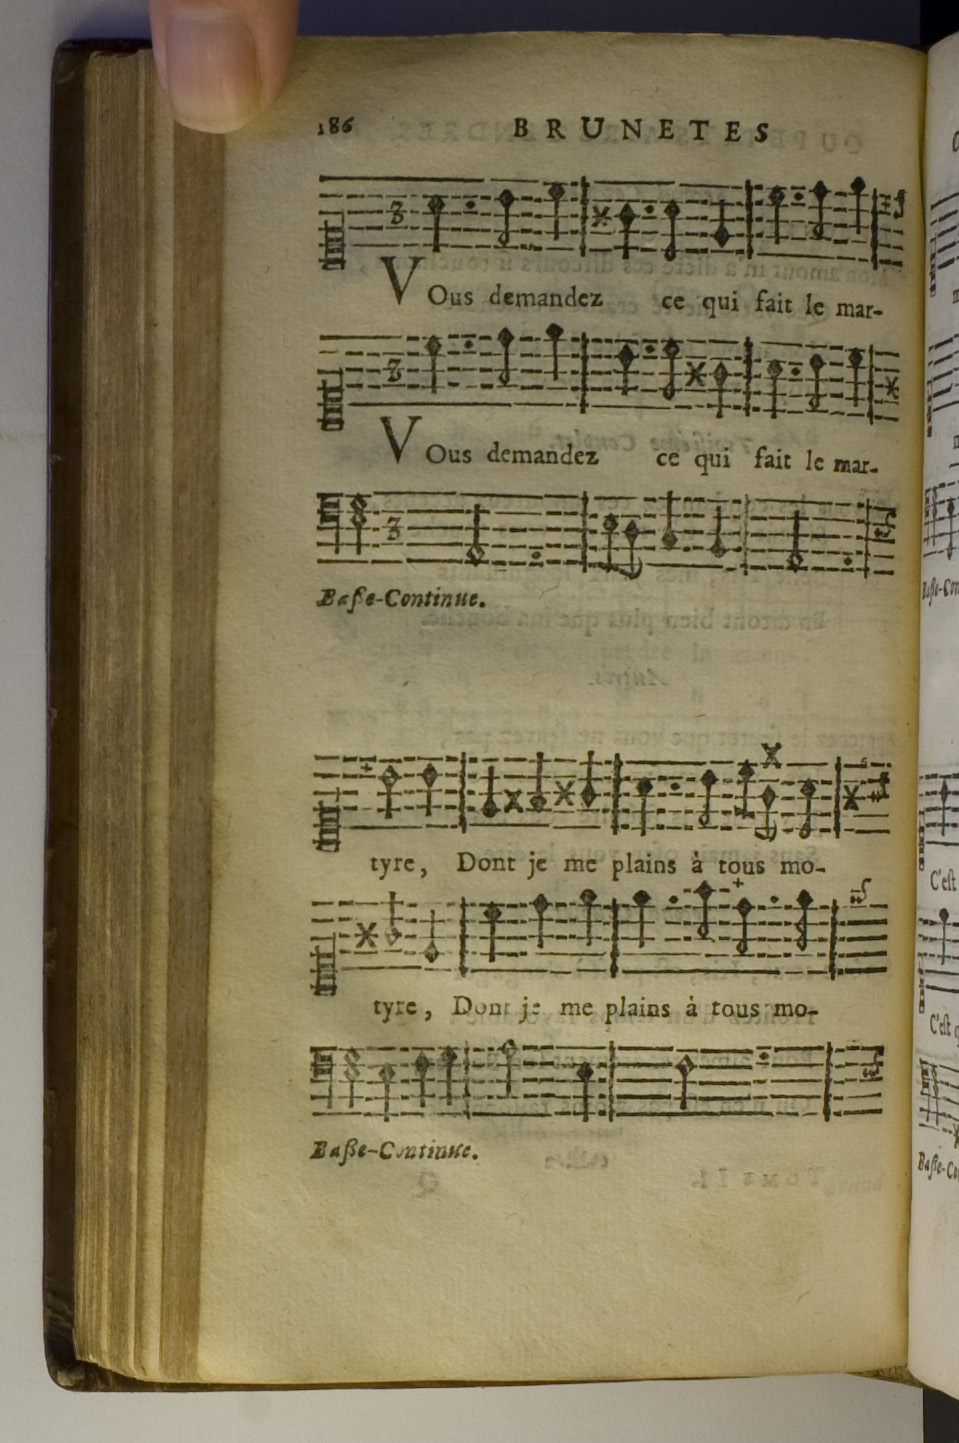 186 BRUNETES
3
VOus demandez ce qui fait le mar-
3
VOus demandez ce qui fait le mar-
3
Baſſe-Continue.
tyre, Dont je me plains à tous mo-
tyre, Dont je me plains à tous mo-
Baſſe-Continue.
C'eſt
C'eſt